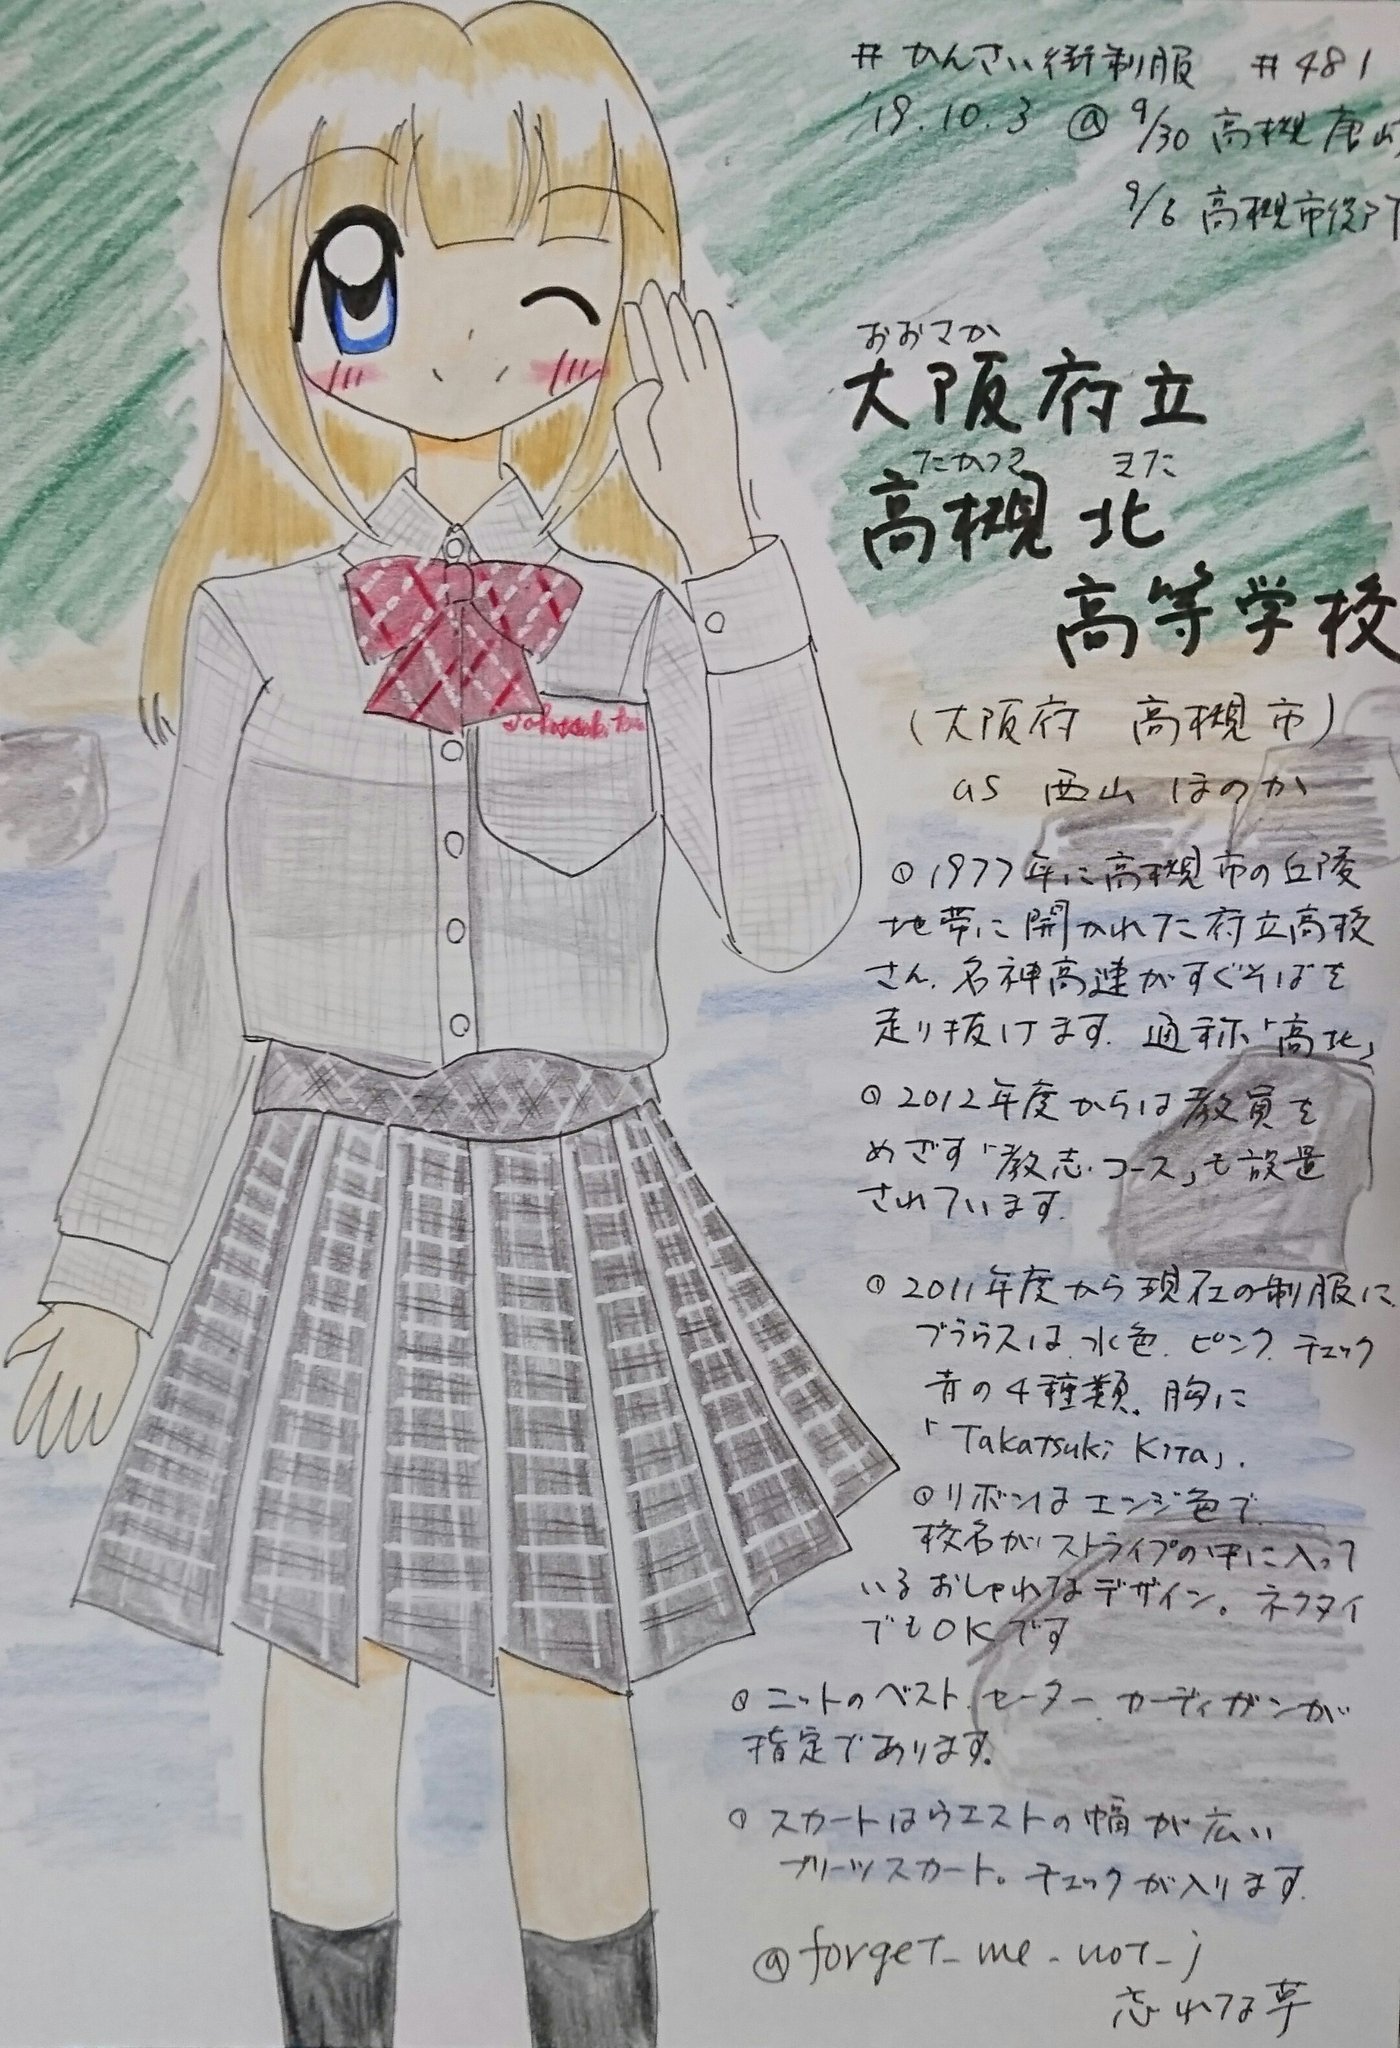 #かんさい街制服 #481
'19.10.3 @ 9/30 高槻唐崎
9/6 高槻市役所
おおさか
大阪府立
たかつき きた
高槻北
高等学校
(大阪府 高槻市)
as 西山 ほのか
Takatsuki Kita
1977年に高槻市の丘陵
地帯に開かれた府立高校
さん. 名神高速がすぐそばを
走り抜けます. 通称「高北」
2012年度からは教員を
めざす「教志コース」も設置
されています.
2011年度から現在の制服に
ブラウスは水色. ピンク. チェック
青の4種類. 胸に
「Takatsuki Kita」.
リボンはエンジ色で
校名がストライプの中に入って
いるおしゃれなデザイン。ネクタイ
でもOKです
ニットのベスト. セーター. カーディガンが
指定であります.
スカートはウエストの幅が広い
プリーツスカート。チェックが入ります.
@forget_me_not_j
忘れな草